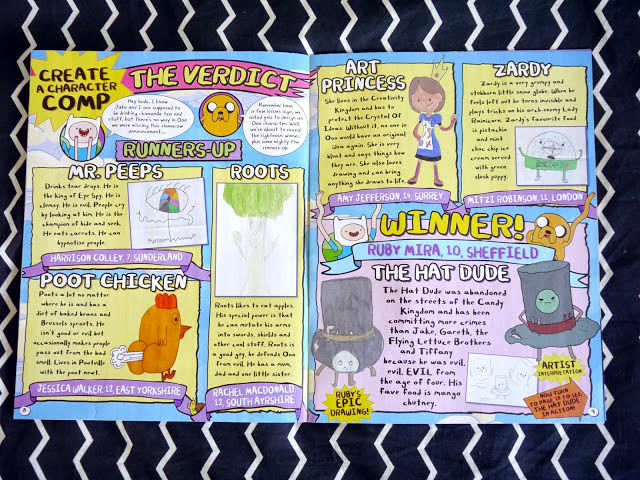 CREATE
A CHARACTER
COMP
THE VERDICT
Hey dude, I know
Jake and I are supposed to
be drinking chamomile tea and
stuff, but there's no way in Ooo
we were missing this awesome
announcement...
Remember how,
a few issues ago, we
asked you to design an
Ooo character? Well,
we're about to reveal
the righteous winner,
plus some mighty fine
runners-up
RUNNERS-UP
MR. PEEPS
Drinks tear drops. He is
the king of Eye Spy. He is
clumsy. He is evil. People cry
by looking at him. He is the
champion of hide and seek.
He eats carrots. He can
hypnotise people.
HARRISON COLLEY, 7, SUNDERLAND
POOT CHICKEN
Poots a lot no matter
where he is and has a
diet of baked beans and
Brussels sprouts. He
isn't good or evil but
occasionally makes people
pass out from the bad
smell. Lives in Pootville
with the poot newt.
JESSICA WALKER, 12, EAST YORKSHIRE
ROOTS
Roots likes to eat apples.
His special power is that
he can mutate his arms
into swords, shields and
other cool stuff. Roots is
a good guy, he defends Ooo
from evil. He has a mum,
dad and one little sister.
RACHEL MACDONALD
12, SOUTH AYRSHIRE
8
ART
PRINCESS
She lives in the Creativity
Kingdom and has to
protect the Crystal Of
Ideas. Without it, no one in
Ooo would have an original
idea again. She is very
blunt and says things how
they are. She also loves
drawing and can bring
anything she draws to life.
AMY JEFFERSON, 14, SURREY
ZARDY
Zardy is a very grumpy and
stubborn little snow globe. When he
feels left out he turns invisible and
plays tricks on his arch-enemy Lady
Zardy's favourite food
is pistachio
and mint
choc chip ice
cream served
with green
slush puppy.
MITZI ROBINSON, 11, LONDON
WINNER!
RUBY MIRA, 10, SHEFFIELD
THE HAT DUDE
The Hat Dude was abandoned
on the streets of the Candy
Kingdom and has been
committing more crimes
than Jake, Gareth, the
Flying Lettuce Brothers
and Tiffany
because he was evil,
evil, EVIL from
the age of four. His
fave food is mango
chutney.
RUBY'S
EPIC
DRAWING!
ARTIST
INTERPRETATION
NOW TURN
TO PAGE 10 TO SEE
THE HAT DUDE
IN ACTION!
9